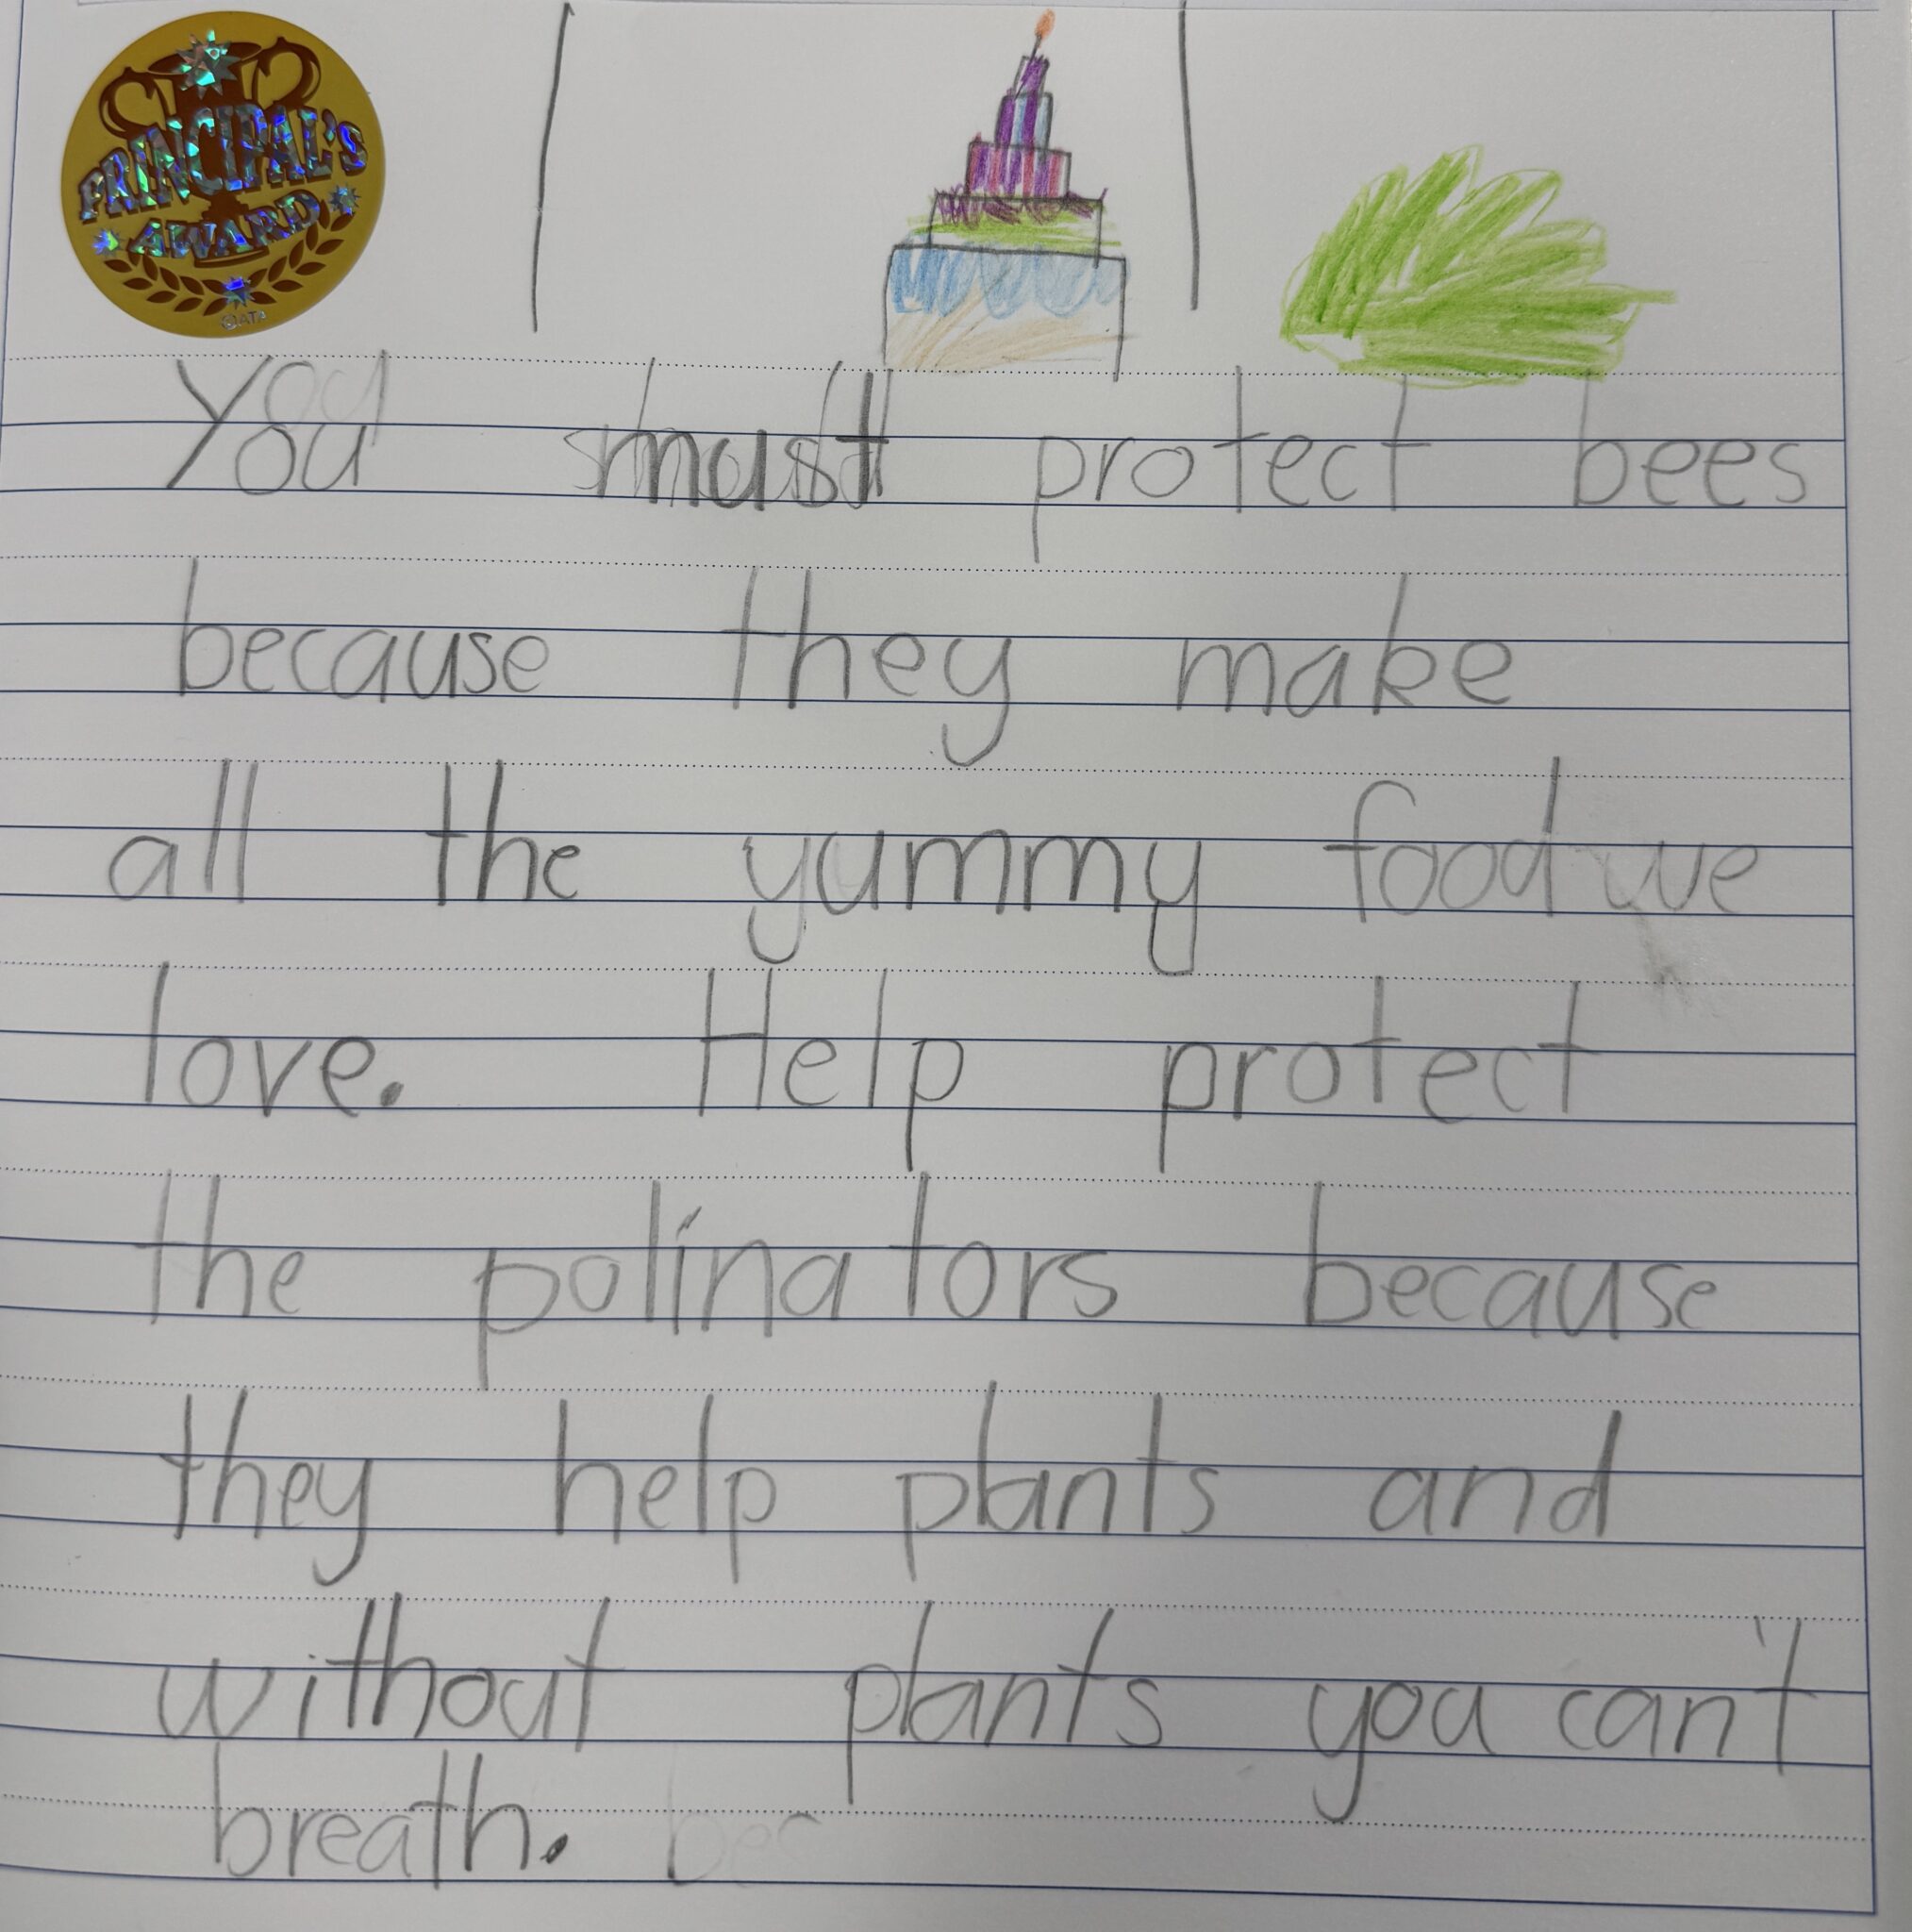 PRINCIPAL'S
AWARD
©ATA
You must protect bees
because they make
all the yummy food we
love. Help protect
the polinators because
they help plants and
without plants you can't
breath.